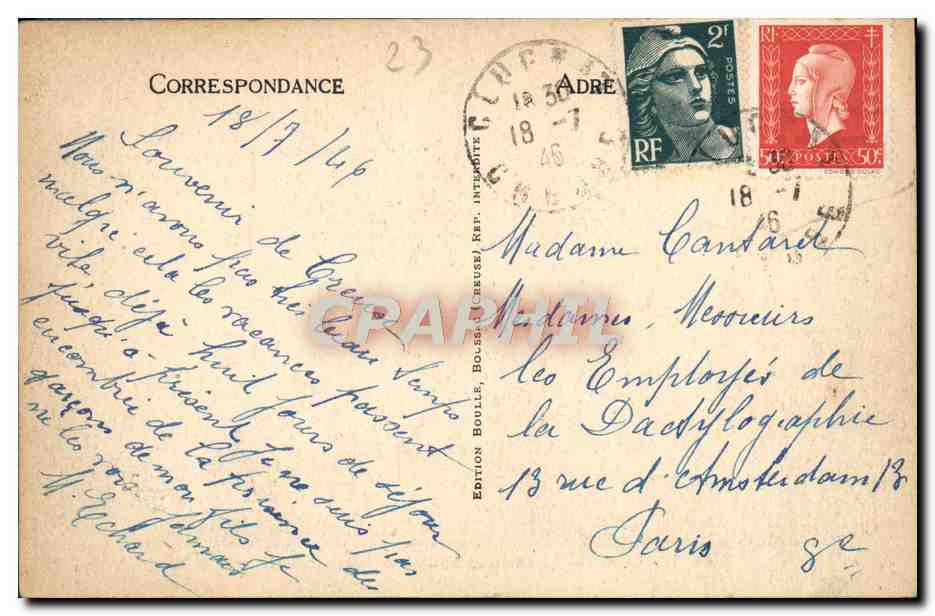 23
CORRESPONDANCE
18/7/46
Souvenir de Creuse
Nous n'avons pas très beau temps
malgré cela les vacances passent
vite, déjà huit jours de séjour
jusqu'à présent je ne suis pas
encombrée de la présence des
garçons de mon fils je
ne les vois jamais
M. Echard
EDITION BOULLE, BOUSSAC (CREUSE) REP. INTERDITE
ADRE
18 -7
46
2F
POSTES
RF
RF
50c POSTES 50c
18 -7
46
Madame Cantarel
Mesdames, Messieurs
les Employés de
la Dactylographie
13 rue d'Amsterdam 13
Paris 8e
CPAPHIL